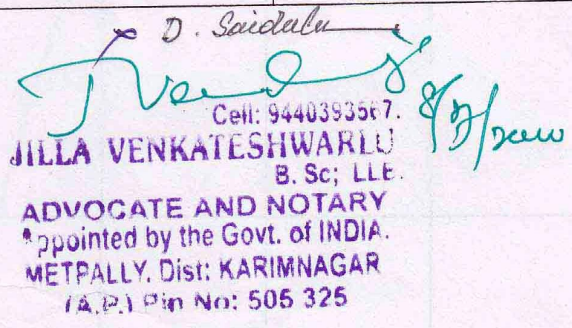 D. Saidulu
Cell: 9440393567.
JILLA VENKATESHWARLU
B. Sc; LLB.
ADVOCATE AND NOTARY
Appointed by the Govt. of INDIA.
METPALLY. Dist: KARIMNAGAR
(A.P.) Pin No: 505 325